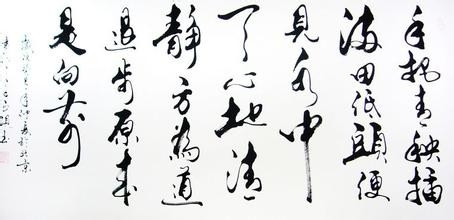 手把青秧插
满田低頭便
見水中
天心地清
静方為道
退步原来
是向前
於北京